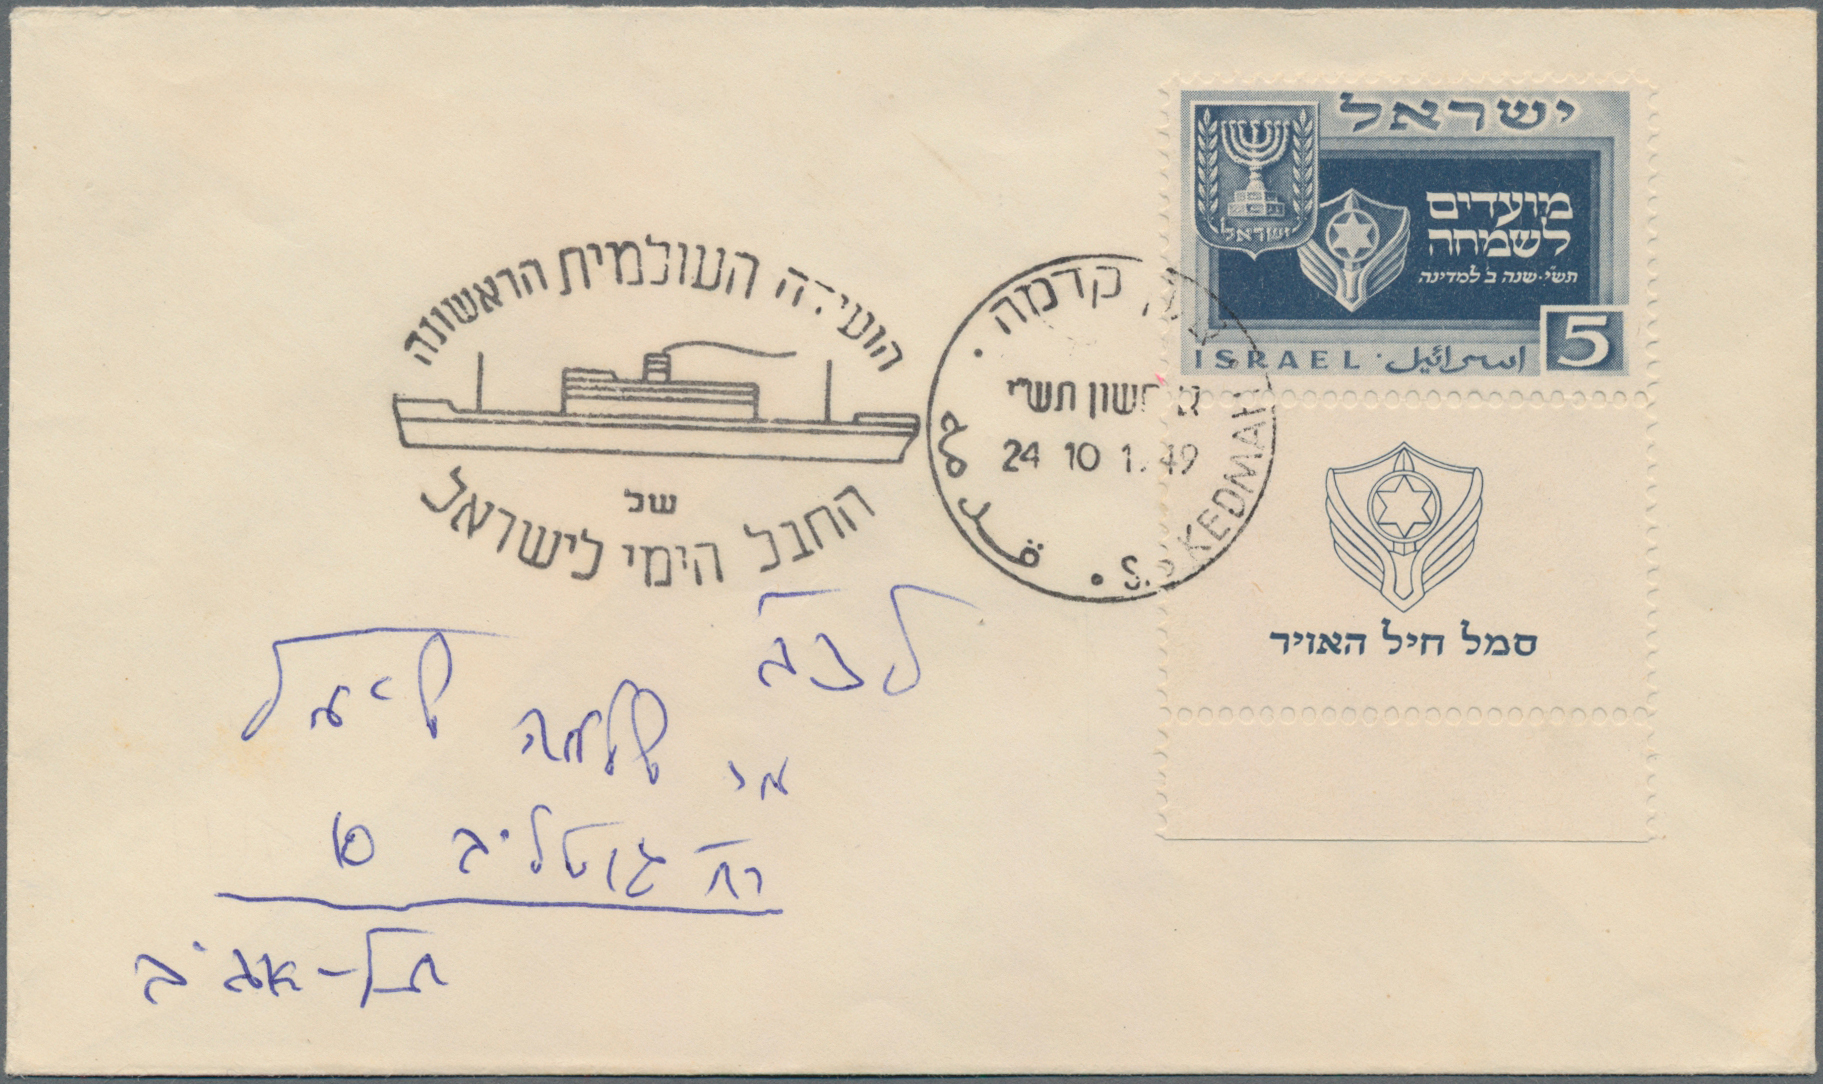 ישראל
ישראל
מועדים
לשמחה
תש״י·שנה ב למדינה
5
ISRAEL · اسرائيل
סמל חיל האויר
קדמה
חשון תש״י
24 10 1 49
S.S KEDMAH
قدمه
הועידה העולמית הראשונה
של
החבל הימי לישראל
לכב'
מר שלמה
רח גוטליב
תל-אביב